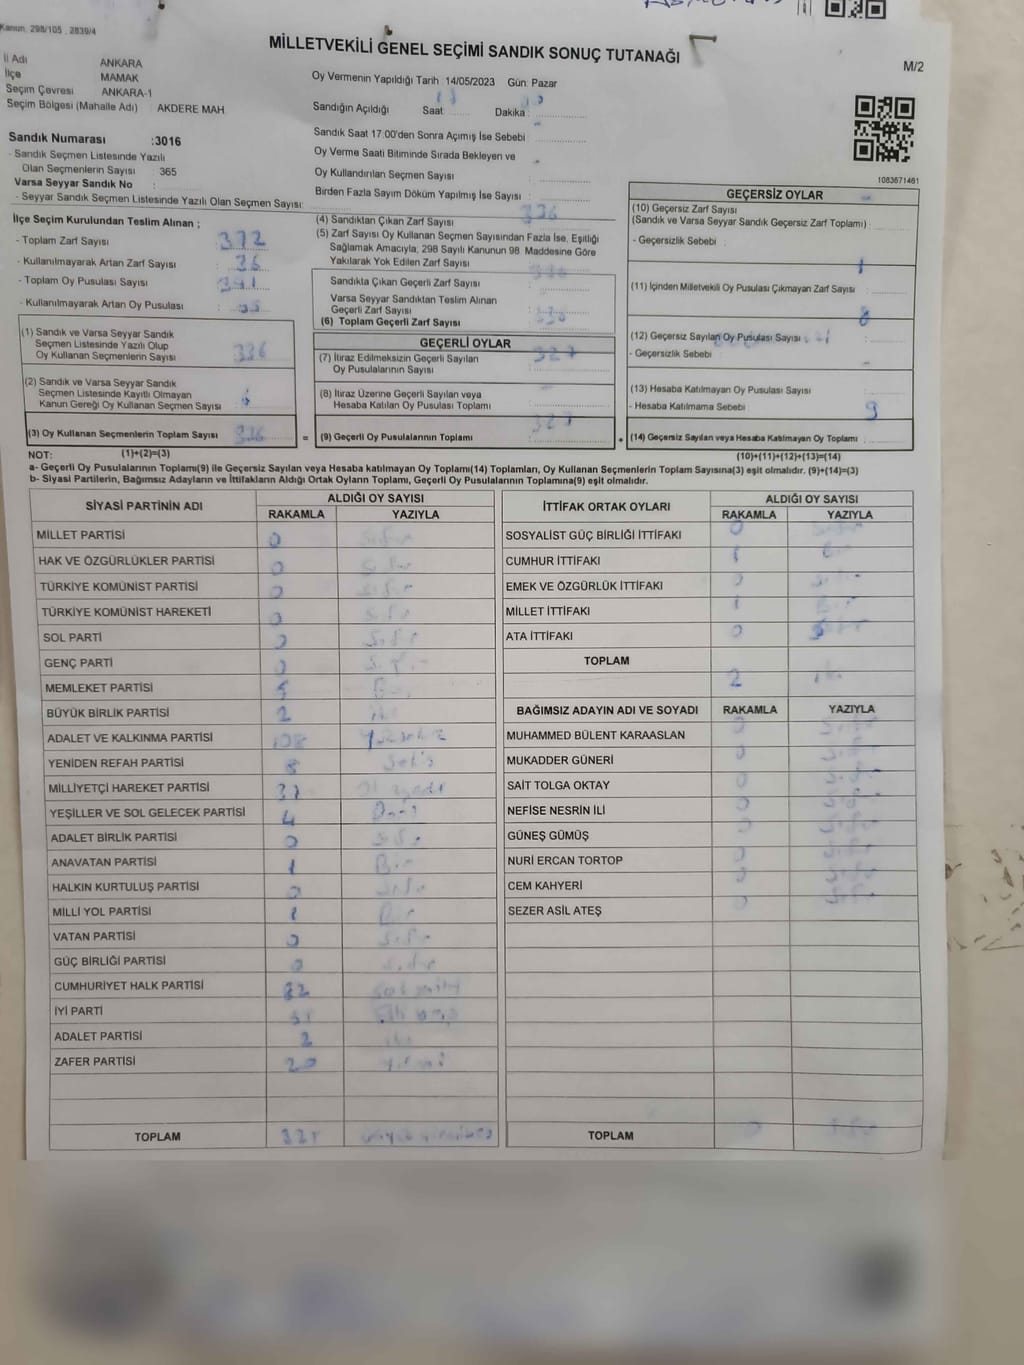 Kanun: 298/105, 2839/4
MİLLETVEKİLİ GENEL SEÇİMİ SANDIK SONUÇ TUTANAĞI
M/2
İl Adı ANKARA
İlçe MAMAK
Seçim Çevresi ANKARA-1
Seçim Bölgesi (Mahalle Adı) : AKDERE MAH
Oy Vermenin Yapıldığı Tarih : 14/05/2023 Gün: Pazar
Sandığın Açıldığı Saat Dakika
Sandık Saat 17:00'den Sonra Açılmış İse Sebebi
Oy Verme Saati Bitiminde Sırada Bekleyen ve
Oy Kullandırılan Seçmen Sayısı
Birden Fazla Sayım Döküm Yapılmış İse Sayısı
1083671461
Sandık Numarası :3016
- Sandık Seçmen Listesinde Yazılı
Olan Seçmenlerin Sayısı 365
Varsa Seyyar Sandık No :
- Seyyar Sandık Seçmen Listesinde Yazılı Olan Seçmen Sayısı:
İlçe Seçim Kurulundan Teslim Alınan ;
- Toplam Zarf Sayısı : 372
- Kullanılmayarak Artan Zarf Sayısı : 36
- Toplam Oy Pusulası Sayısı :
- Kullanılmayarak Artan Oy Pusulası :
(1) Sandık ve Varsa Seyyar Sandık
Seçmen Listesinde Yazılı Olup
Oy Kullanan Seçmenlerin Sayısı 336
(2) Sandık ve Varsa Seyyar Sandık
Seçmen Listesinde Kayıtlı Olmayan
Kanun Gereği Oy Kullanan Seçmen Sayısı
(3) Oy Kullanan Seçmenlerin Toplam Sayısı 336
(1)+(2)=(3)
(4) Sandıktan Çıkan Zarf Sayısı 336
(5) Zarf Sayısı Oy Kullanan Seçmen Sayısından Fazla İse, Eşitliği
Sağlamak Amacıyla; 298 Sayılı Kanunun 98. Maddesine Göre
Yakılarak Yok Edilen Zarf Sayısı
Sandıkta Çıkan Geçerli Zarf Sayısı : 336
Varsa Seyyar Sandıktan Teslim Alınan
Geçerli Zarf Sayısı :
(6) Toplam Geçerli Zarf Sayısı : 336
GEÇERLİ OYLAR
(7) İtiraz Edilmeksizin Geçerli Sayılan
Oy Pusulalarının Sayısı : 327
(8) İtiraz Üzerine Geçerli Sayılan veya
Hesaba Katılan Oy Pusulası Toplamı
= (9) Geçerli Oy Pusulalarının Toplamı : 327
GEÇERSİZ OYLAR
(10) Geçersiz Zarf Sayısı
(Sandık ve Varsa Seyyar Sandık Geçersiz Zarf Toplamı) :
- Geçersizlik Sebebi :
(11) İçinden Milletvekili Oy Pusulası Çıkmayan Zarf Sayısı 1
(12) Geçersiz Sayılan Oy Pusulası Sayısı 8
- Geçersizlik Sebebi
(13) Hesaba Katılmayan Oy Pusulası Sayısı
- Hesaba Katılmama Sebebi
+ (14) Geçersiz Sayılan veya Hesaba Katılmayan Oy Toplamı 9
(10)+(11)+(12)+(13)=(14)
NOT:
a- Geçerli Oy Pusulalarının Toplamı(9) ile Geçersiz Sayılan veya Hesaba katılmayan Oy Toplamı(14) Toplamları, Oy Kullanan Seçmenlerin Toplam Sayısına(3) eşit olmalıdır. (9)+(14)=(3)
b- Siyasi Partilerin, Bağımsız Adayların ve İttifakların Aldığı Ortak Oyların Toplamı, Geçerli Oy Pusulalarının Toplamına(9) eşit olmalıdır.
SİYASİ PARTİNİN ADI ALDIĞI OY SAYISI
RAKAMLA YAZIYLA
MİLLET PARTİSİ 0 Sıfır
HAK VE ÖZGÜRLÜKLER PARTİSİ 0 Sıfır
TÜRKİYE KOMÜNİST PARTİSİ 0 Sıfır
TÜRKİYE KOMÜNİST HAREKETİ 0 Sıfır
SOL PARTİ 0 Sıfır
GENÇ PARTİ 0 Sıfır
MEMLEKET PARTİSİ
BÜYÜK BİRLİK PARTİSİ 2 İki
ADALET VE KALKINMA PARTİSİ 108
YENİDEN REFAH PARTİSİ 8 Sekiz
MİLLİYETÇİ HAREKET PARTİSİ 37
YEŞİLLER VE SOL GELECEK PARTİSİ 4 Dört
ADALET BİRLİK PARTİSİ 0 Sıfır
ANAVATAN PARTİSİ 1 Bir
HALKIN KURTULUŞ PARTİSİ 0 Sıfır
MİLLİ YOL PARTİSİ 1 Bir
VATAN PARTİSİ 0 Sıfır
GÜÇ BİRLİĞİ PARTİSİ 0 Sıfır
CUMHURİYET HALK PARTİSİ 82
İYİ PARTİ
ADALET PARTİSİ 2 İki
ZAFER PARTİSİ 20 Yirmi
TOPLAM 325
İTTİFAK ORTAK OYLARI ALDIĞI OY SAYISI
RAKAMLA YAZIYLA
SOSYALİST GÜÇ BİRLİĞİ İTTİFAKI 0 Sıfır
CUMHUR İTTİFAKI 1
EMEK VE ÖZGÜRLÜK İTTİFAKI 0 Sıfır
MİLLET İTTİFAKI 1 Bir
ATA İTTİFAKI 0
TOPLAM 2 İki
BAĞIMSIZ ADAYIN ADI VE SOYADI RAKAMLA YAZIYLA
MUHAMMED BÜLENT KARAASLAN 0 Sıfır
MUKADDER GÜNERİ 0 Sıfır
SAİT TOLGA OKTAY 0 Sıfır
NEFİSE NESRİN İLİ 0 Sıfır
GÜNEŞ GÜMÜŞ 0 Sıfır
NURİ ERCAN TORTOP 0 Sıfır
CEM KAHYERİ 0 Sıfır
SEZER ASİL ATEŞ 0 Sıfır
TOPLAM 0 Sıfır